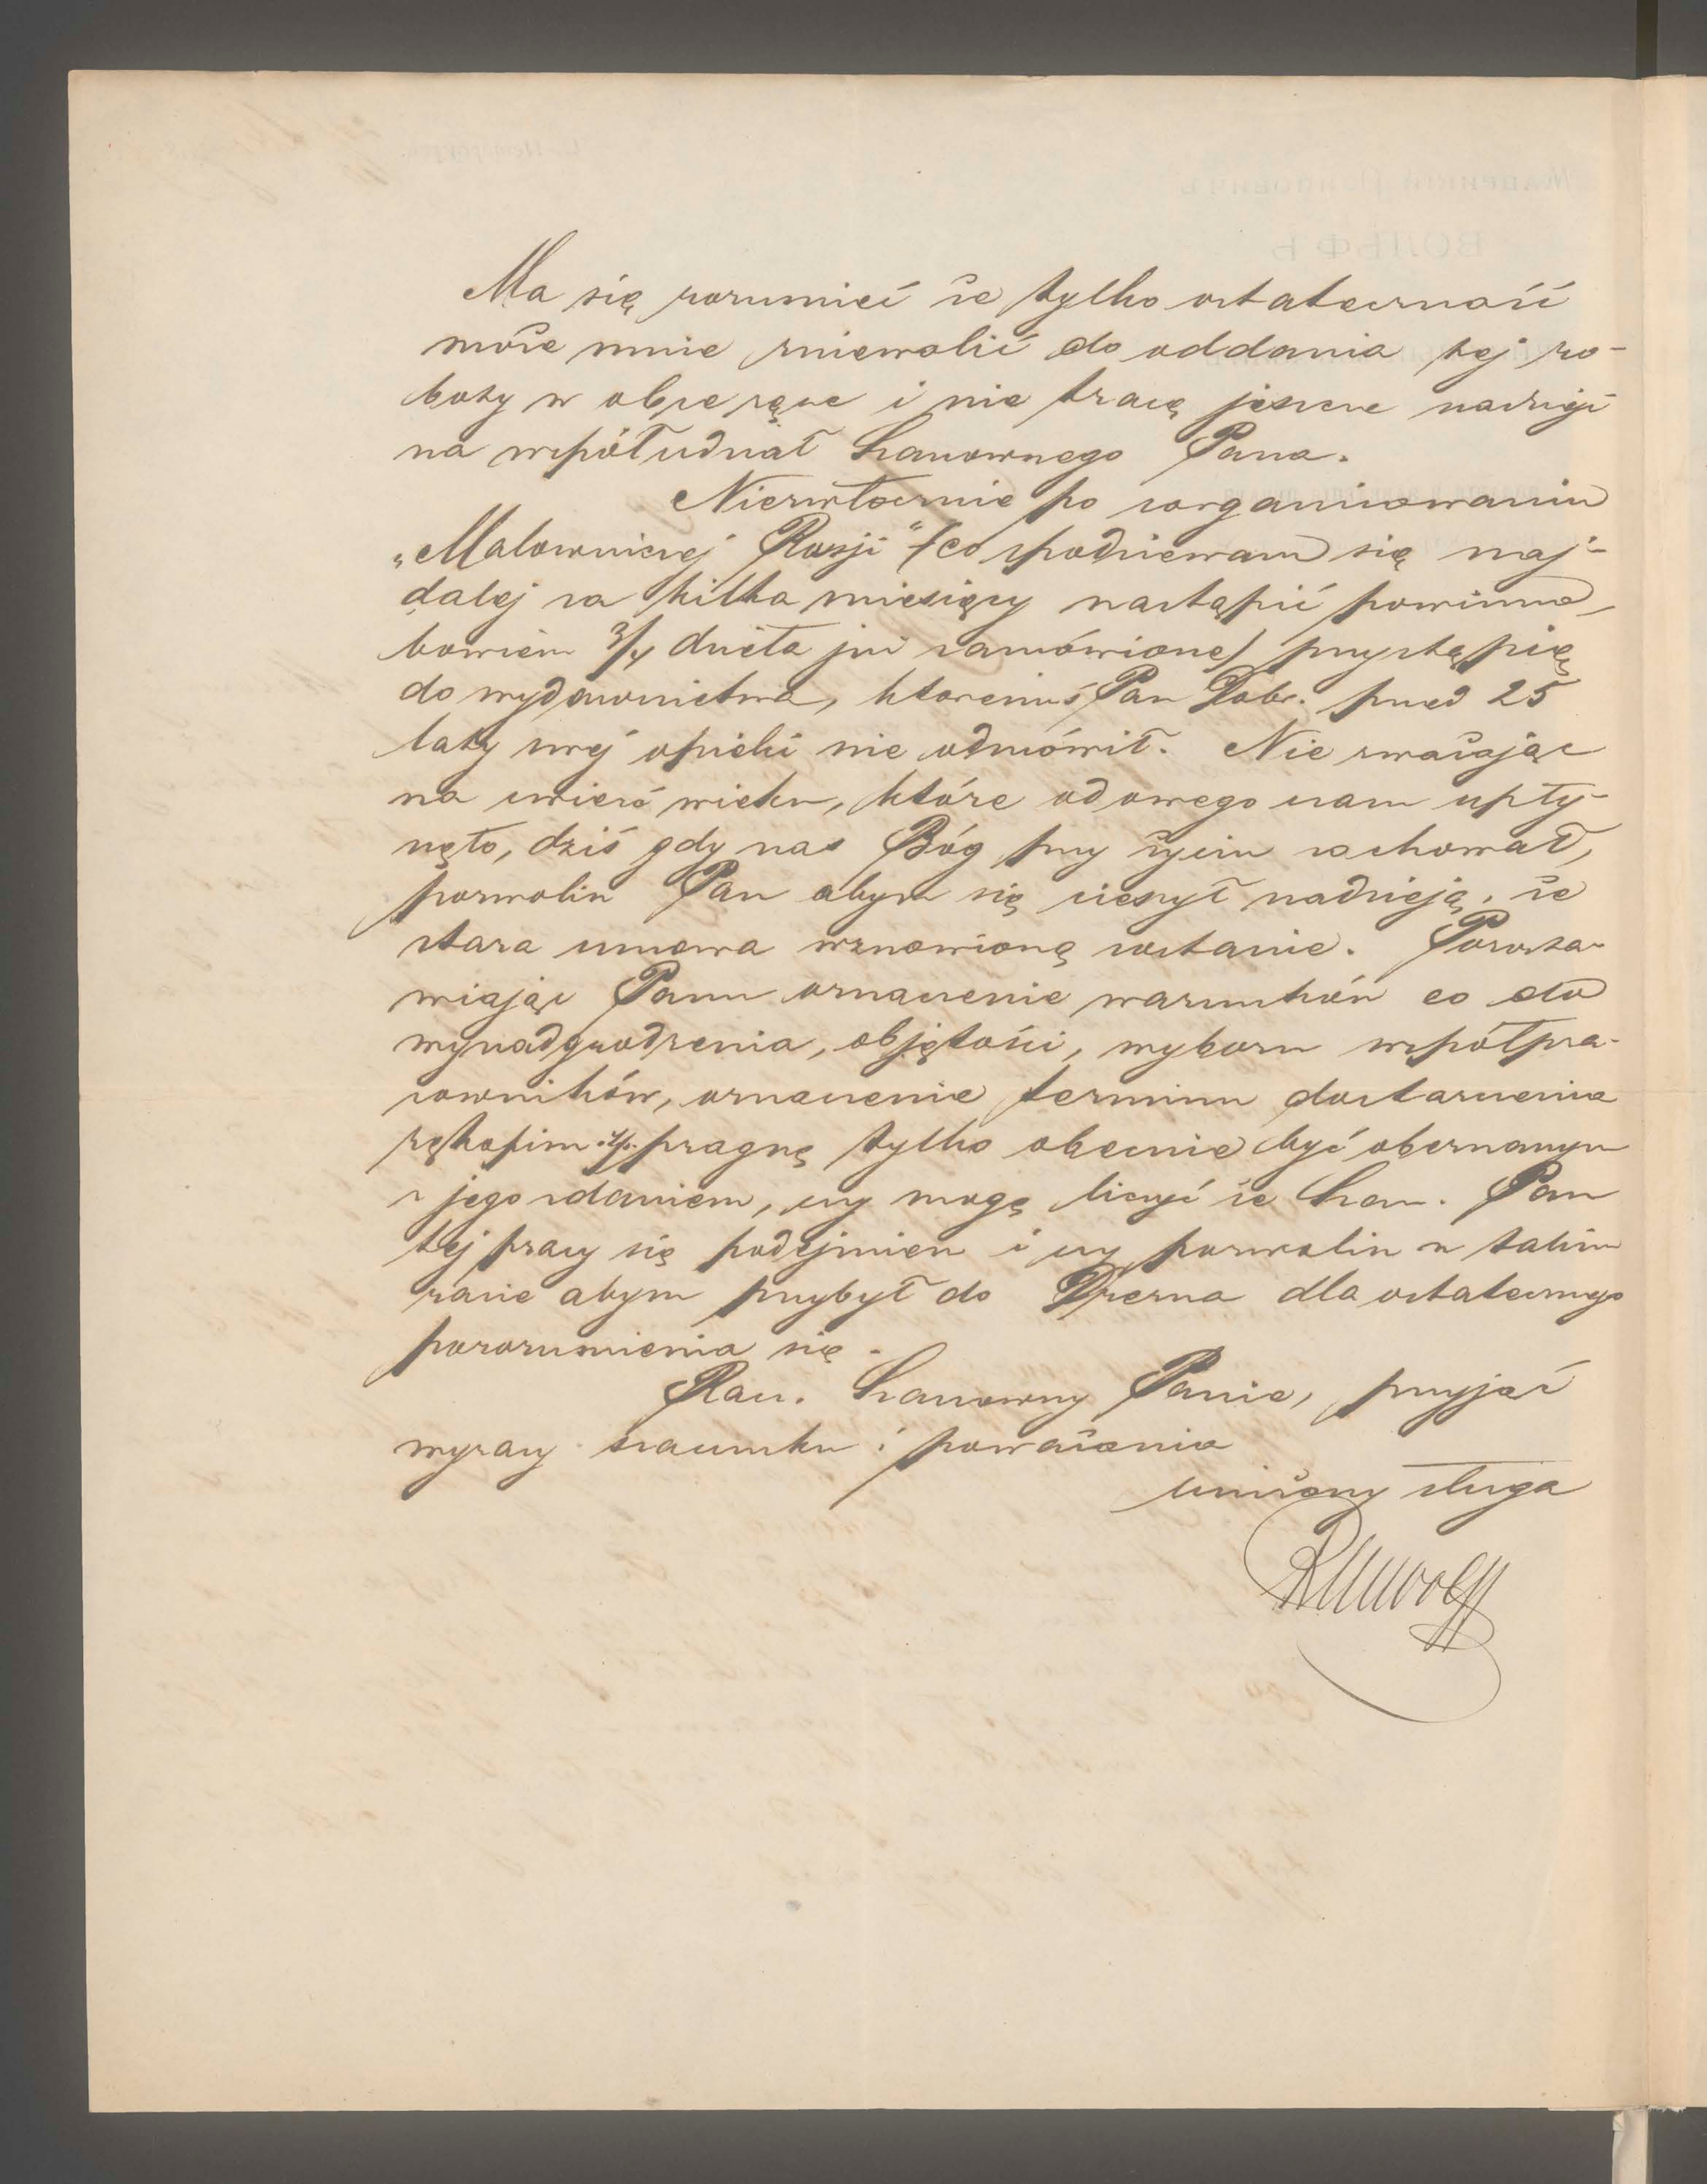 Ma się rozumieć że tylko ostateczność
może mnie zniewolić do oddania tej ro-
boty w obce ręce i nie tracę jeszcze nadzieji
na współudział Szanownego Pana.
Niezwłocznie po zorganizowaniu
„Malowniczej Rosji" (co spodziewam się naj-
dalej za kilka miesięcy nastąpić powinno,
bowiem 3/4 dzieła już zamówione) przystąpię
do wydawnictwa, któremuś Pan Dobr. przed 25
laty swej opieki nie odmówił. Nie zważając
na ćwierć wieku, które od owego czasu upły-
nęło, dziś gdy nas Bóg przy życiu zachował,
pozwolisz Pan abym się cieszył nadzieją, że
stara umowa wznowioną zostanie. Pozosta-
wiając Panu oznaczenie warunków co do
wynadgrodzenia, objętości, wyboru współpra-
cowników, oznaczenie terminu dostarczenia
rękopism itp. pragnę tylko obecnie być obeznanym
z jego zdaniem, czy mogę liczyć że Szan. Pan
tej pracy się podejmiesz i czy pozwolisz w takim
razie abym przybył do Drezna dla ostatecznego
porozumienia się.
Racz. Szanowny Panie, przyjąć
wyrazy szacunku i poważania
uniżony sługa
BMWolff